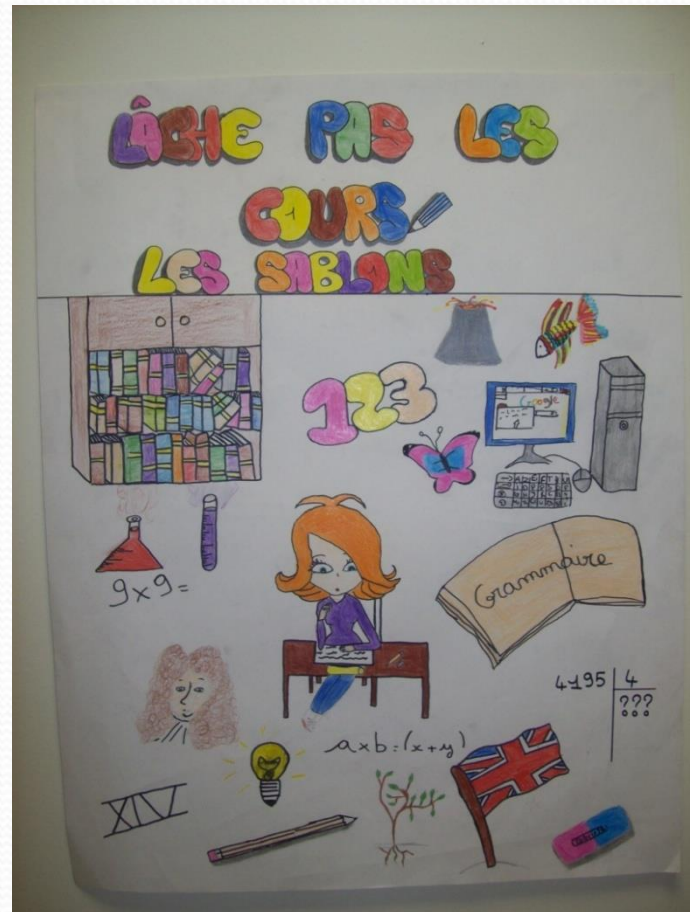 LÂCHE PAS LES
COURS
LES SABLONS
123
Google
9x9=
Grammaire
4195 | 4
???
axb=(x+y)
XIV